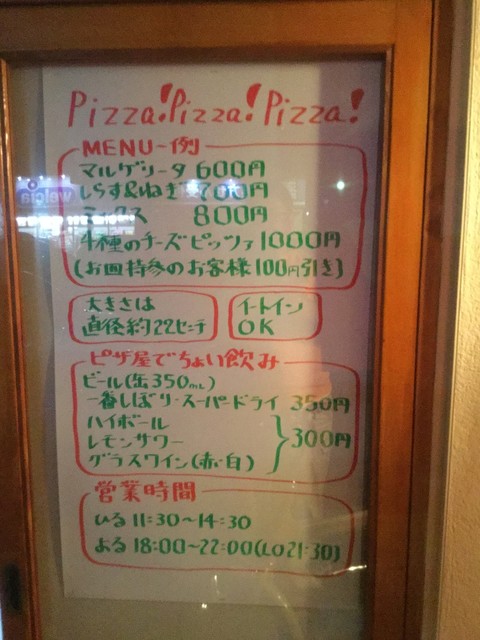 Pizza! Pizza! Pizza!
MENU一例
マルゲリータ 600円
しらす&ねぎ 700円
ミックス 800円
4種のチーズピッツァ 1000円
(お皿持参のお客様100円引き)
大きさは
直径約22センチ
イートイン
OK
ピザ屋でちょい飲み
ビール(缶350mL)
一番しぼり・スーパードライ 350円
ハイボール
レモンサワー
グラスワイン(赤・白)
300円
営業時間
ひる 11:30~14:30
よる 18:00~22:00(LO21:30)
welcia